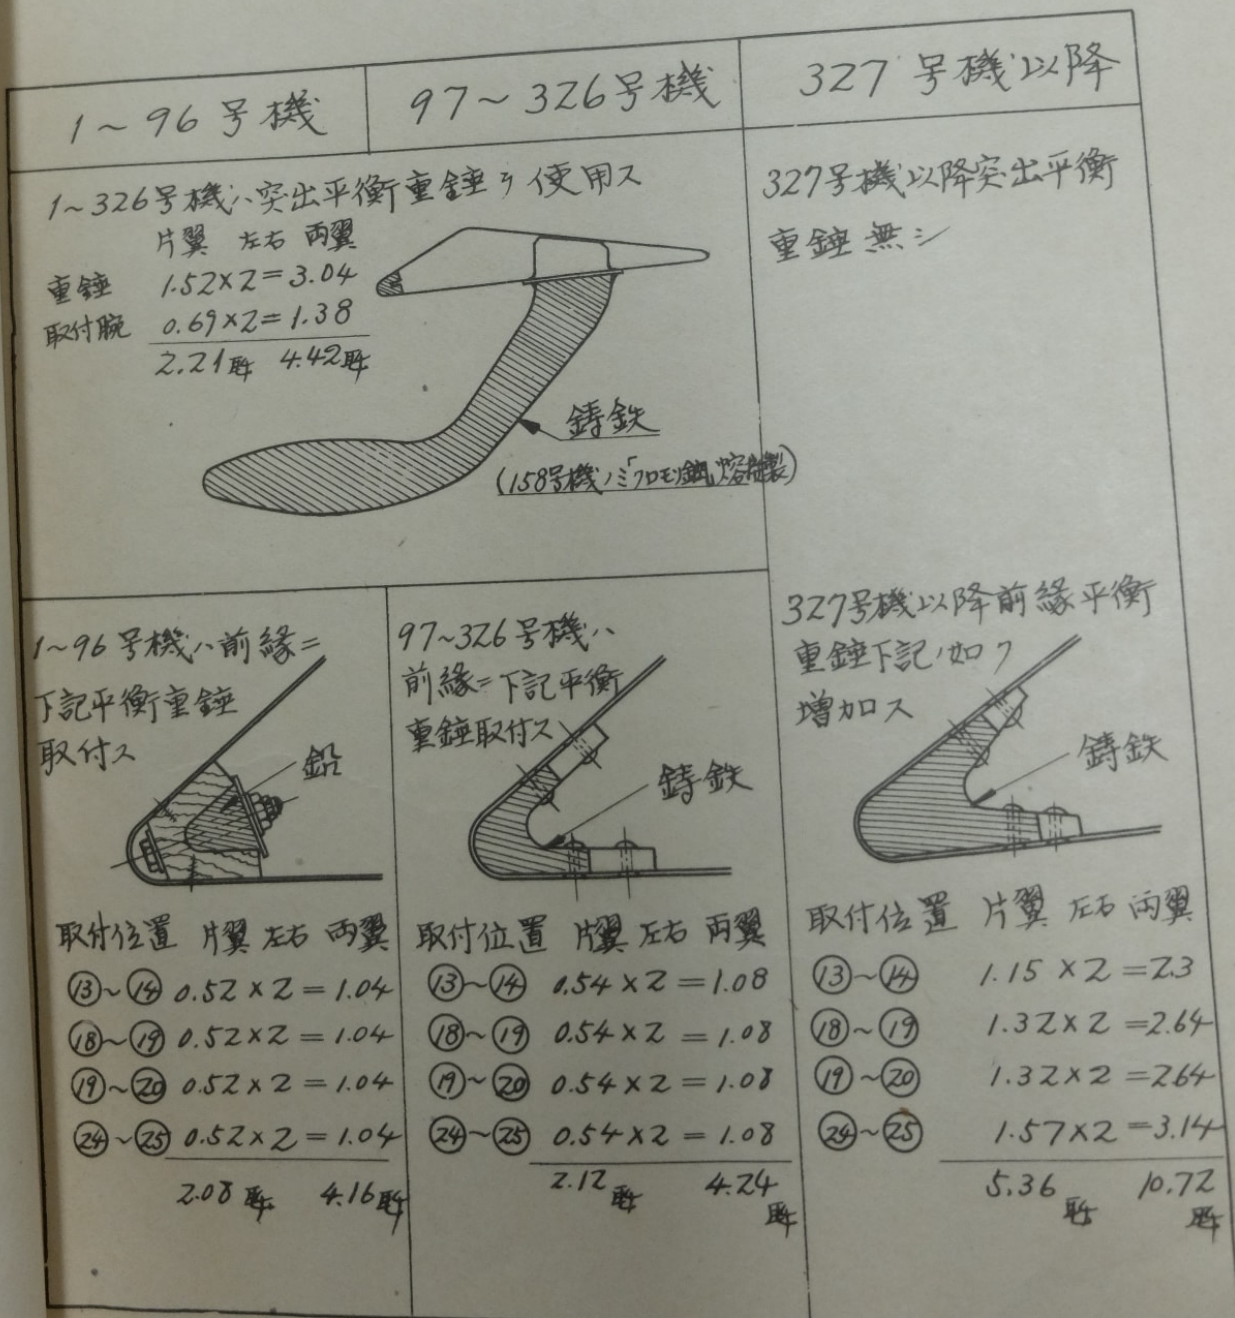 1～96号機
97～326号機
327号機以降
1～326号機ハ突出平衡重錘ヲ使用ス
片翼 左右 両翼
重錘 1.52×2=3.04
取付腕 0.69×2=1.38
2.21瓩 4.42瓩
鋳鉄
(158号機ノミクロモリ鋼熔接製)
327号機以降突出平衡
重錘無シ
1～96号機ハ前縁ニ
下記平衡重錘
取付ス
鉛
取付位置 片翼 左右 両翼
⑬～⑭ 0.52×2=1.04
⑱～⑲ 0.52×2=1.04
⑲～⑳ 0.52×2=1.04
㉔～㉕ 0.52×2=1.04
2.08瓩 4.16瓩
97～326号機ハ
前縁ニ下記平衡
重錘取付ス
鋳鉄
取付位置 片翼 左右 両翼
⑬～⑭ 0.54×2=1.08
⑱～⑲ 0.54×2=1.08
⑲～⑳ 0.54×2=1.08
㉔～㉕ 0.54×2=1.08
2.12瓩 4.24瓩
327号機以降前縁平衡
重錘下記ノ如ク
増加ス
鋳鉄
取付位置 片翼 左右 両翼
⑬～⑭ 1.15×2=2.3
⑱～⑲ 1.32×2=2.64
⑲～⑳ 1.32×2=2.64
㉔～㉕ 1.57×2=3.14
5.36瓩 10.72瓩